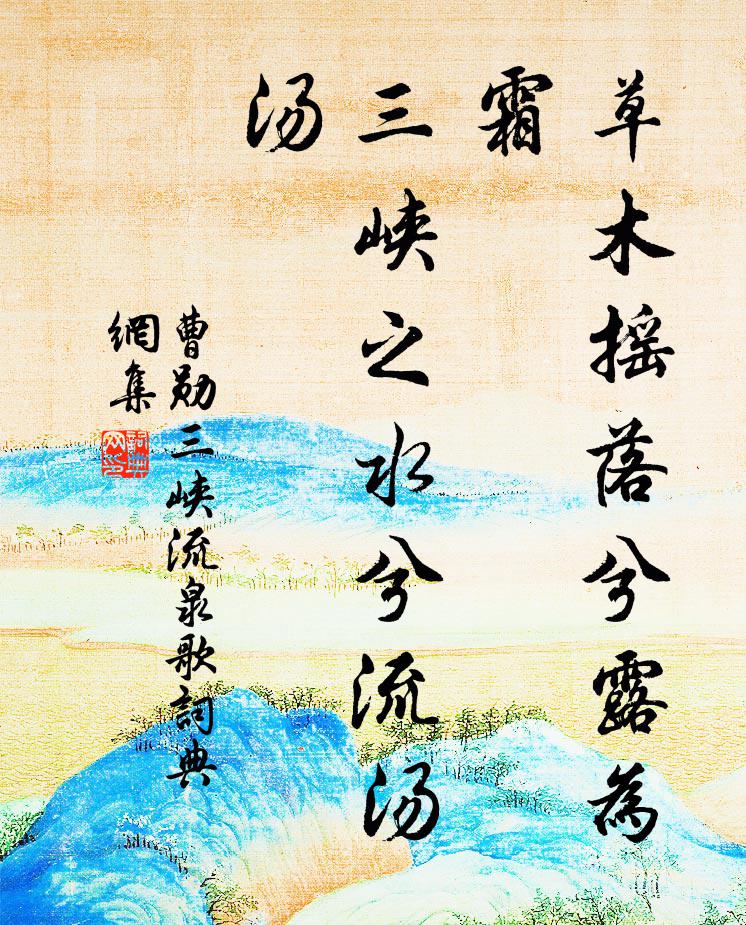 草木摇落兮露為
霜
三峡之水兮流汤
汤
曹勋三峡流泉歌詞典
網集
詞典
网印